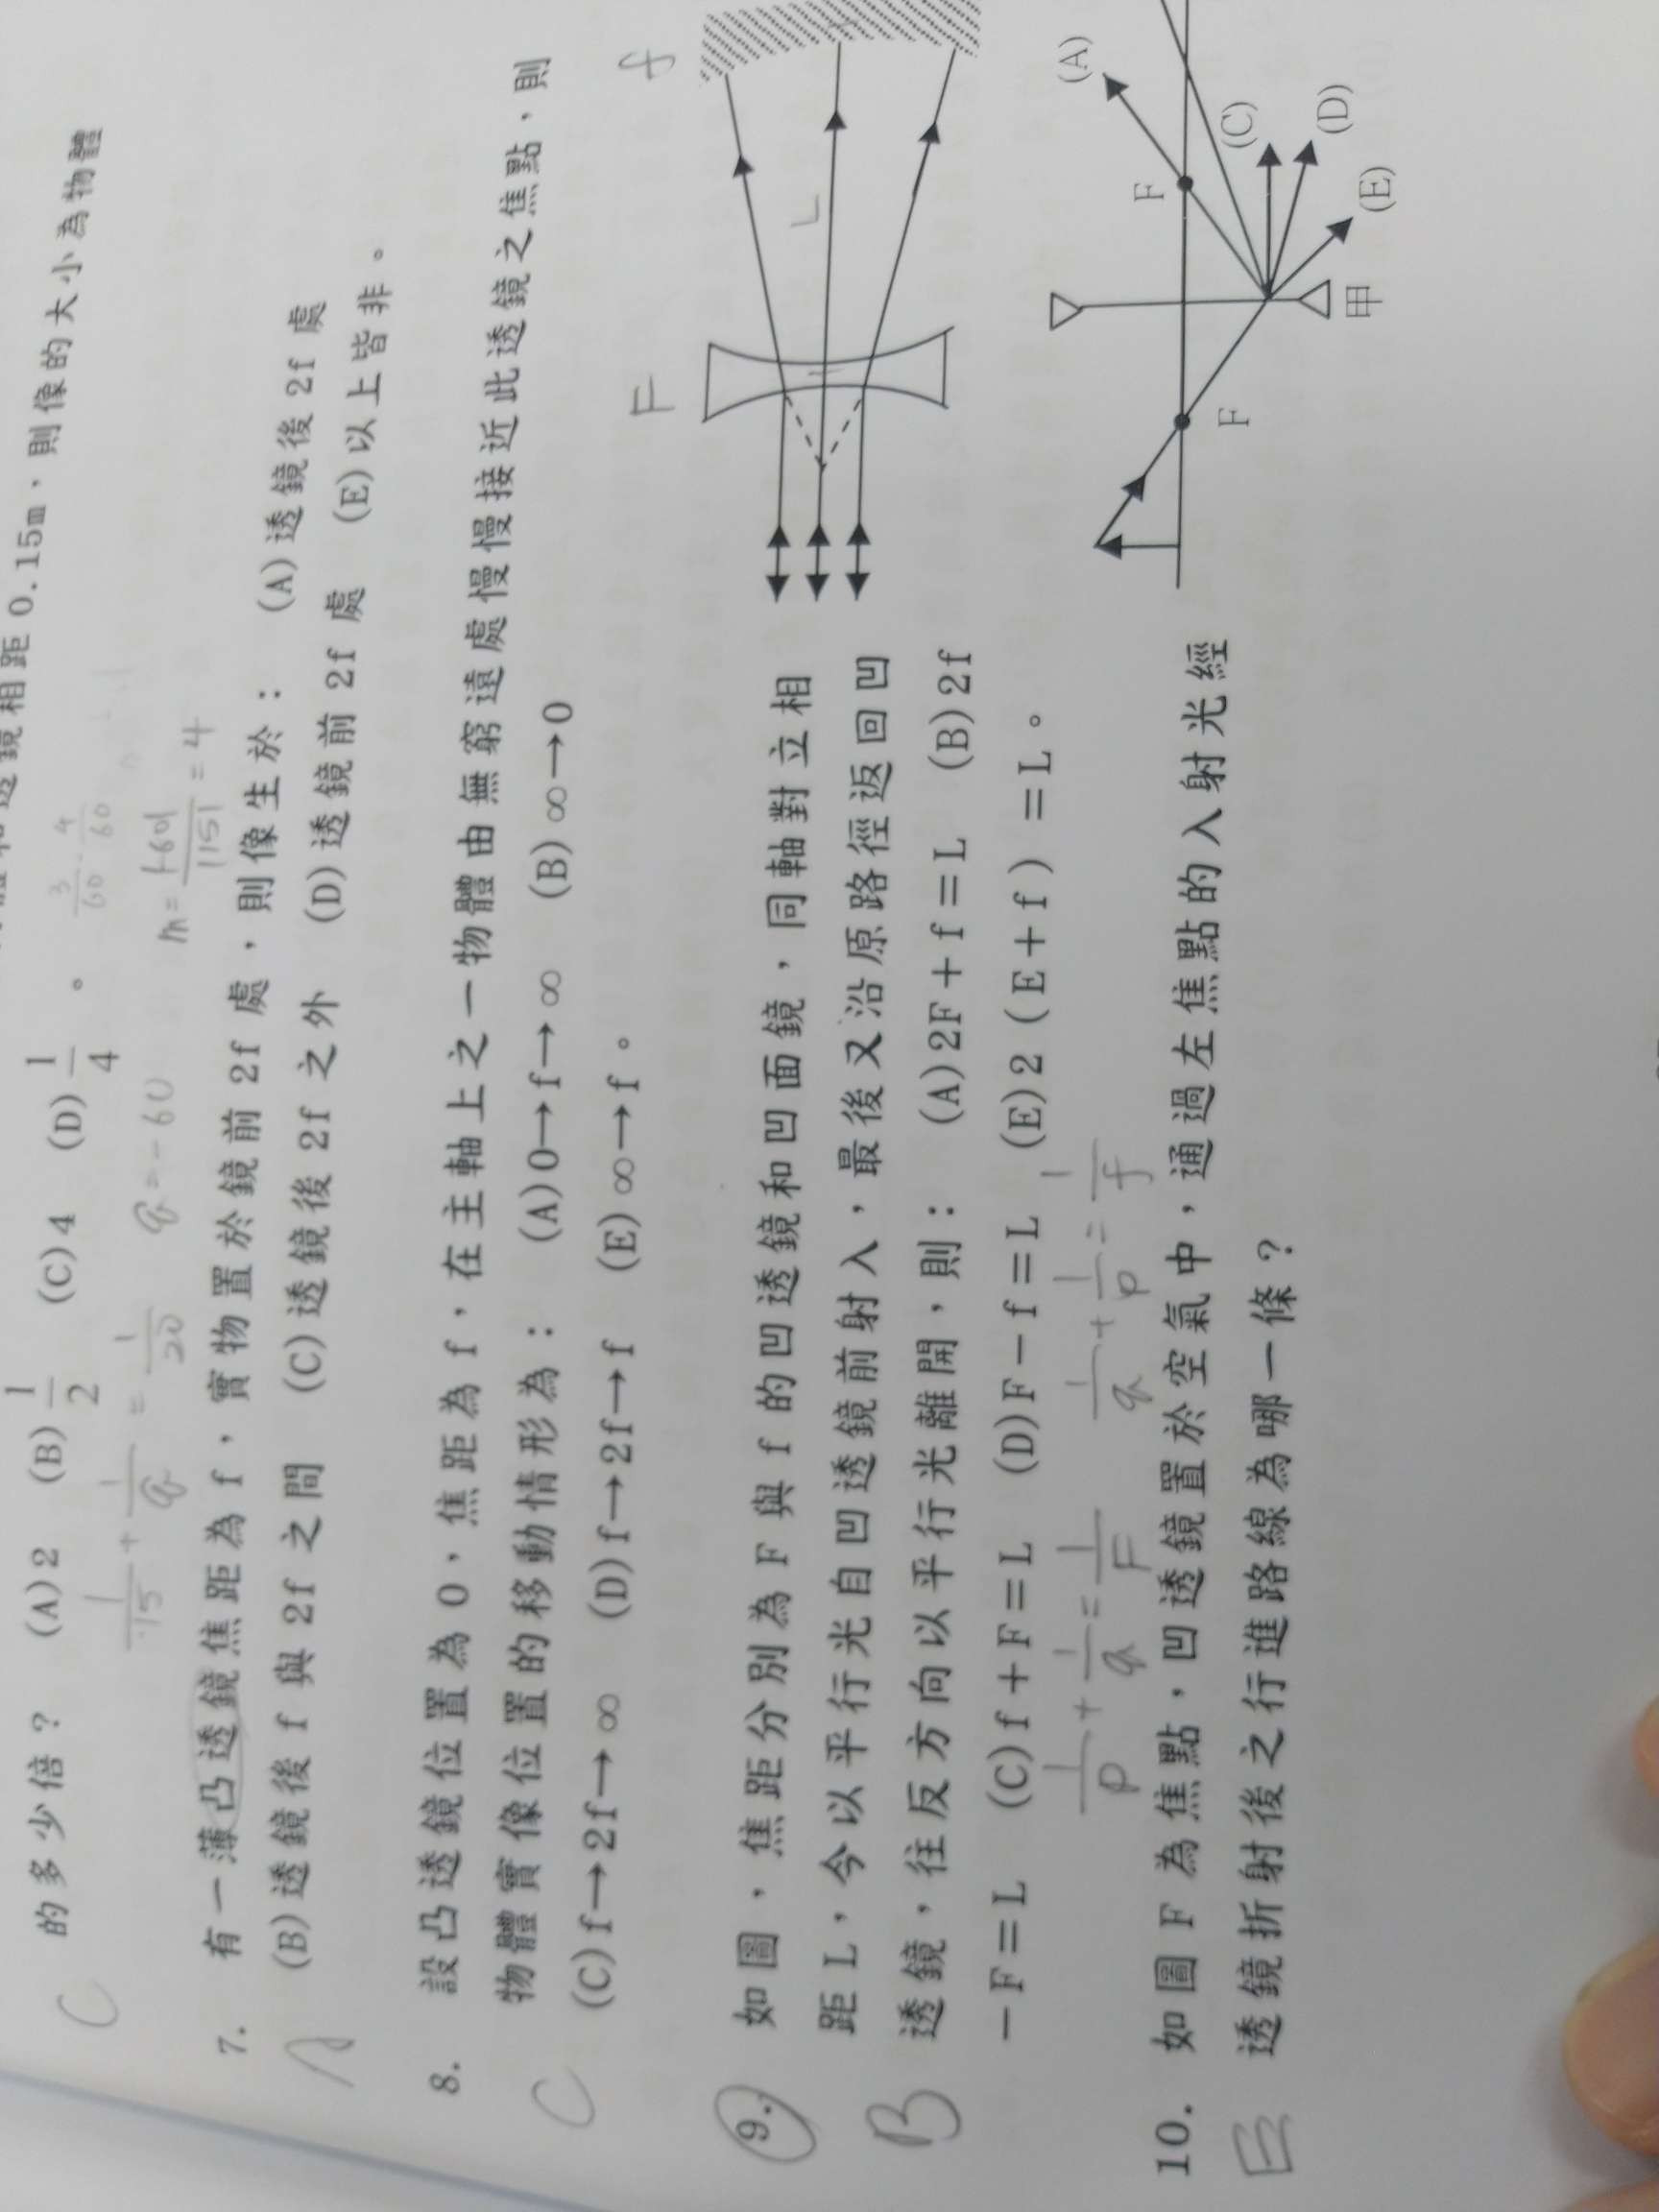 相距0.15m，則像的大小為物體
的多少倍？ (A)2 (B)1/2 (C)4 (D)1/4 。
C
1/15 + 1/q = 1/20 q=-60
3/60 - 4/60
m = |-60|/|15| = 4
7. 有一薄凸透鏡焦距為 f，實物置於鏡前 2f 處，則像生於： (A)透鏡後 2f 處
(B)透鏡後 f 與 2f 之間 (C)透鏡後 2f 之外 (D)透鏡前 2f 處 (E)以上皆非。
A
8. 設凸透鏡位置為 0，焦距為 f，在主軸上之一物體由無窮遠處慢慢接近此透鏡之焦點，則
物體實像位置的移動情形為： (A)0→f→∞ (B)∞→0
(C)f→2f→∞ (D)f→2f→f (E)∞→f。
C
9. 如圖，焦距分別為 F 與 f 的凹透鏡和凹面鏡，同軸對立相
距 L，今以平行光自凹透鏡前射入，最後又沿原路徑返回凹
透鏡，往反方向以平行光離開，則： (A)2F＋f＝L (B)2f
－F＝L (C)f＋F＝L (D)F－f＝L (E)2(E＋f)＝L。
B
F
f
L
1/p + 1/q = 1/F 1/q + 1/p = 1/f
10. 如圖 F 為焦點，凹透鏡置於空氣中，通過左焦點的入射光經
透鏡折射後之行進路線為哪一條？
E
F
F
(A)
(C)
(D)
(E)
甲